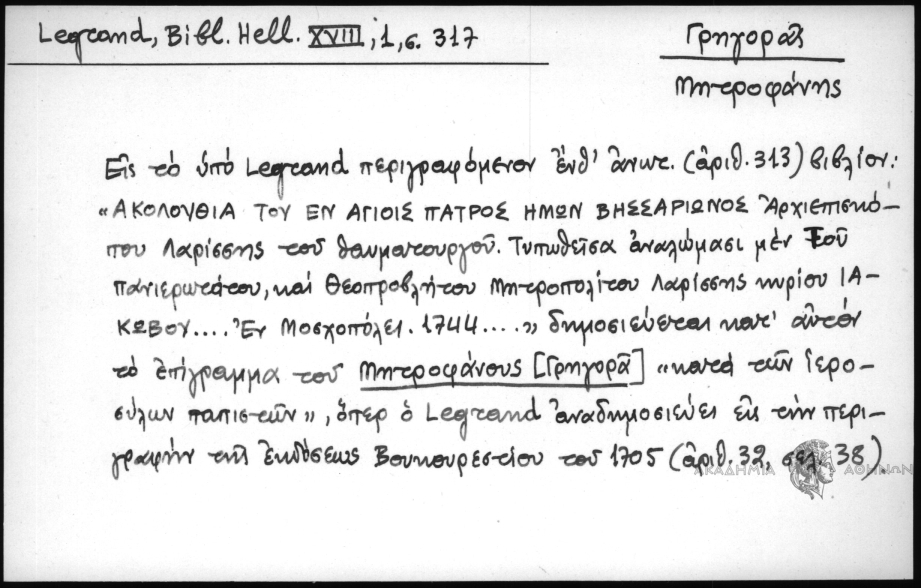 Legrand, Bibl. Hell. XVIII, 1, σ. 317
Γρηγορᾶς
Μητροφάνης
Εἰς τὸ ὑπὸ Legrand περιγραφόμενον ἔνθ' ἄνωτ. (ἀριθ. 313) βιβλίον:
«ΑΚΟΛΟΥΘΙΑ ΤΟΥ ΕΝ ΑΓΙΟΙΣ ΠΑΤΡΟΣ ΗΜΩΝ ΒΗΣΣΑΡΙΩΝΟΣ Ἀρχιεπισκό-
που Λαρίσσης τοῦ θαυματουργοῦ. Τυπωθεῖσα ἀναλώμασι μὲν τοῦ
πανιερωτάτου, καὶ Θεοπροβλήτου Μητροπολίτου Λαρίσσης κυρίου ΙΑ-
ΚΩΒΟΥ.... Ἐν Μοσχοπόλει. 1744....» δημοσιεύεται κατ' αὐτὸν
τὸ ἐπίγραμμα τοῦ Μητροφάνους [Γρηγορᾶ] «κατὰ τῶν ἱερο-
σύλων παπιστῶν», ὅπερ ὁ Legrand ἀναδημοσιεύει εἰς τὴν περι-
γραφὴν τῆς ἐκδόσεως Βουκουρεστίου τοῦ 1705 (ἀριθ. 32, σελ. 38).
ΑΚΑΔΗΜΙΑ ΑΘΗΝΩΝ